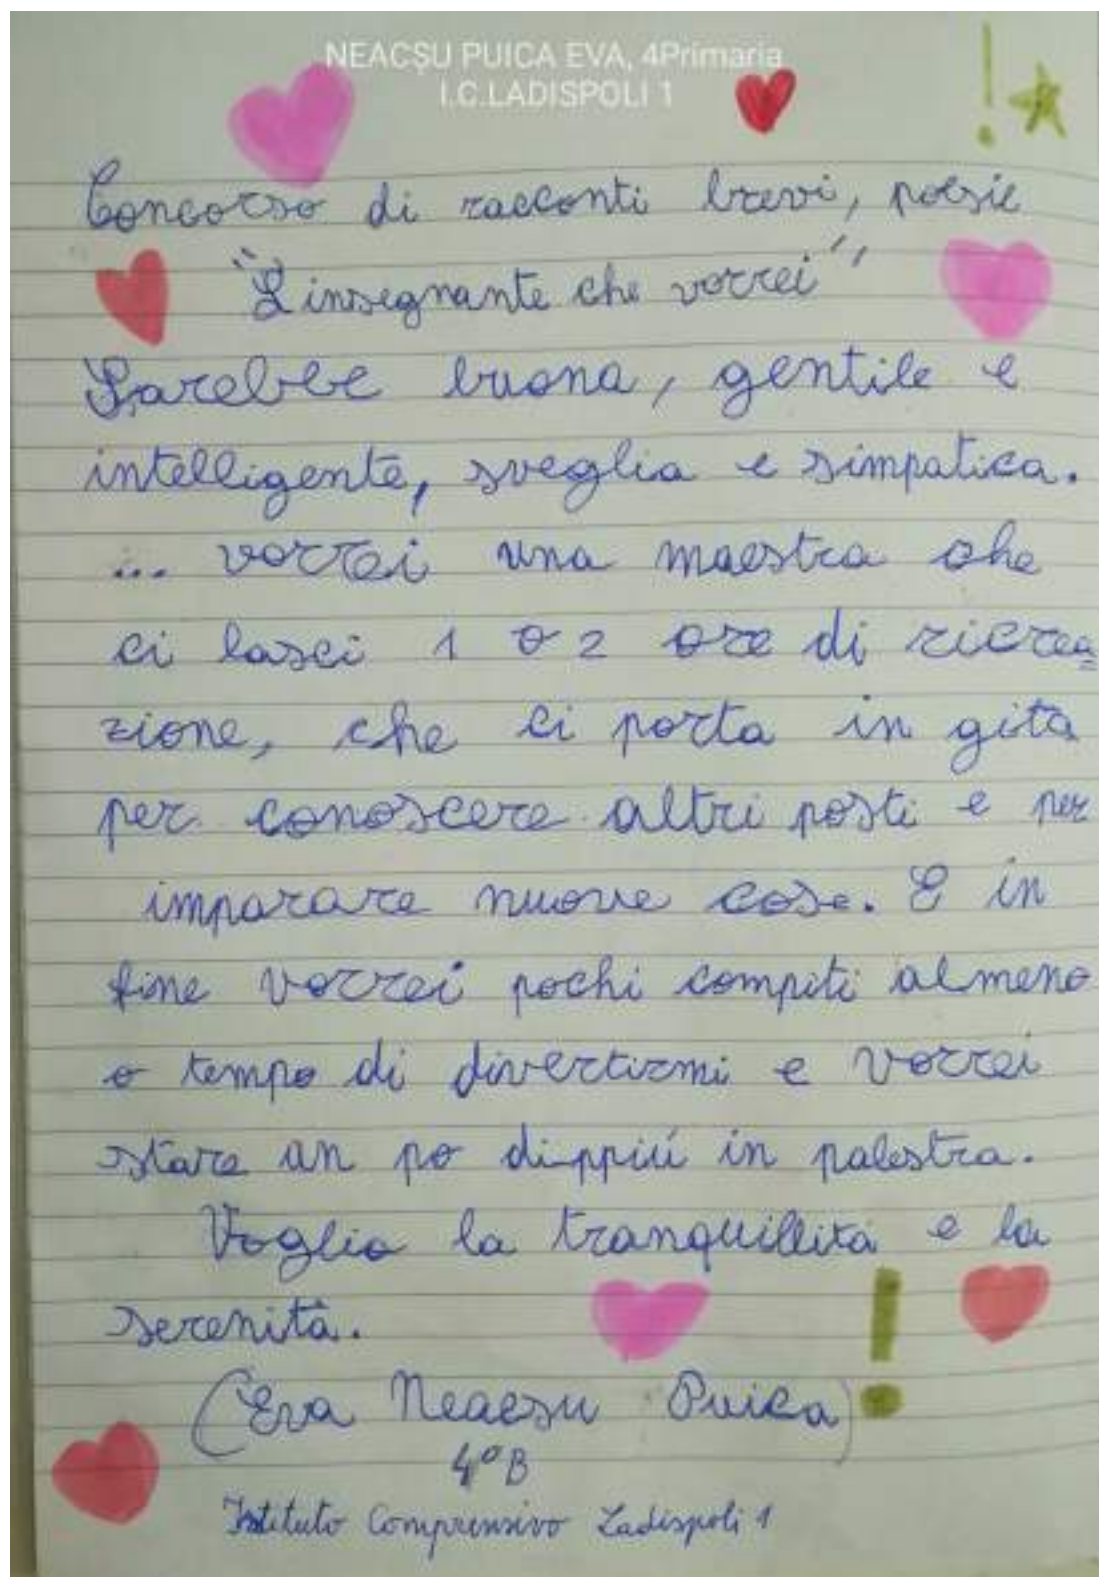 NEACȘU PUICA EVA, 4Primaria
I.C.LADISPOLI 1
Concorso di racconti brevi, poesie
"L'insegnante che vorrei"
Sarebbe buona, gentile e
intelligente, sveglia e simpatica.
... vorrei una maestra che
ci lasci 1 o 2 ore di ricrea=
zione, che ci porta in gita
per conoscere altri posti e per
imparare nuove cose. E in
fine vorrei pochi compiti almeno
o tempo di divertirmi e vorrei
stare un po dippiú in palestra.
Voglio la tranquillitá e la
serenitá.
(Eva Neacsu Puica)
4°B
Istituto Comprensivo Ladispoli 1